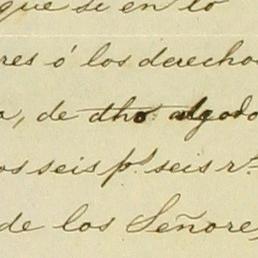 que si en lo
res ó los derecho
, de dho. algodo
os seis p.s seis r.s
de los Señore